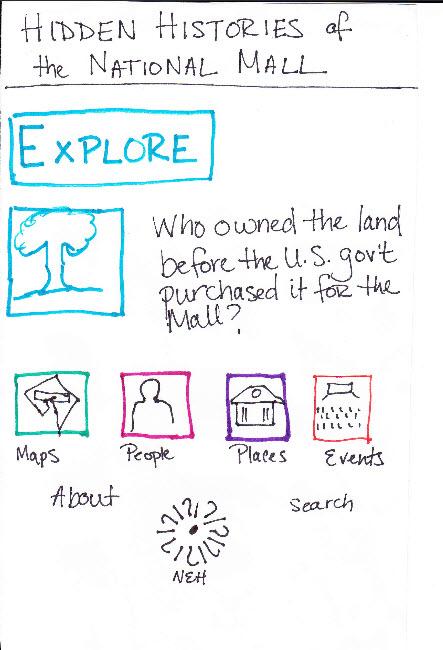 HIDDEN HISTORIES of
the NATIONAL MALL
EXPLORE
Who owned the land
before the U.S. gov't
purchased it for the
Mall?
Maps People Places Events
About Search
NEH